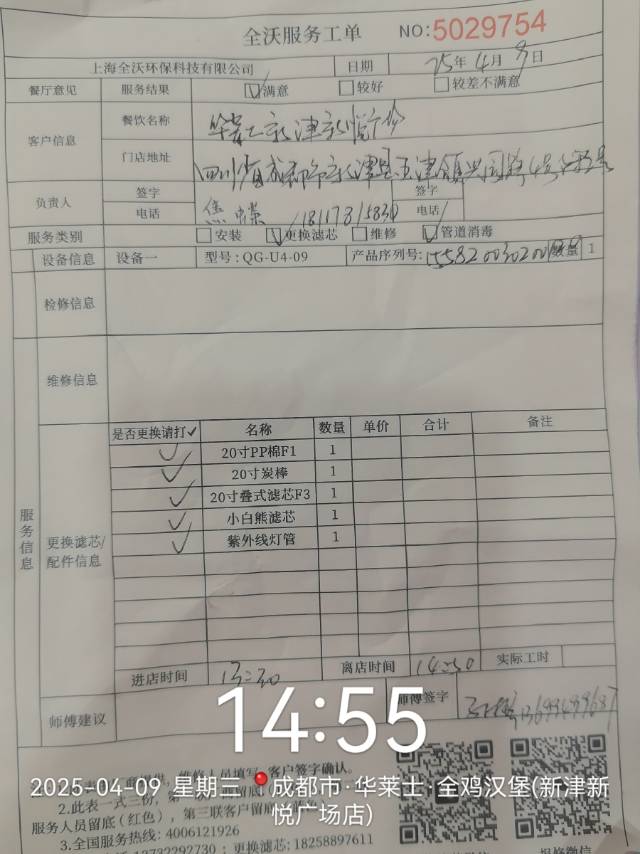 全沃服务工单 NO:5029754
上海全沃环保科技有限公司 日期 25年4月9日
餐厅意见 服务结果 ☑满意 □较好 □较差不满意
客户信息 餐饮名称 华莱士新津新悦广场
门店地址 四川省成都市新津县五津镇兴园路4号
负责人 签字 签字
电话 18117815830 电话
服务类别 □安装 ☑更换滤芯 □维修 ☑管道消毒
设备信息 设备一 型号:QG-U4-09 产品序列号: 数量 1
检修信息
维修信息
服务信息
更换滤芯/配件信息
是否更换请打✓ 名称 数量 单价 合计 备注
✓ 20寸PP棉F1 1
✓ 20寸炭棒 1
✓ 20寸叠式滤芯F3 1
✓ 小白熊滤芯 1
✓ 紫外线灯管 1
进店时间 13:30 离店时间 14:50 实际工时
师傅建议 师傅签字
14:55
客户签字确认。
2025-04-09 星期三 成都市·华莱士·全鸡汉堡(新津新悦广场店)
2.此表一式三份,
服务人员留底(红色),第三联客户留底
3.全国服务热线:4006121926
13732292730 ;更换滤芯:18258897611
报修微信